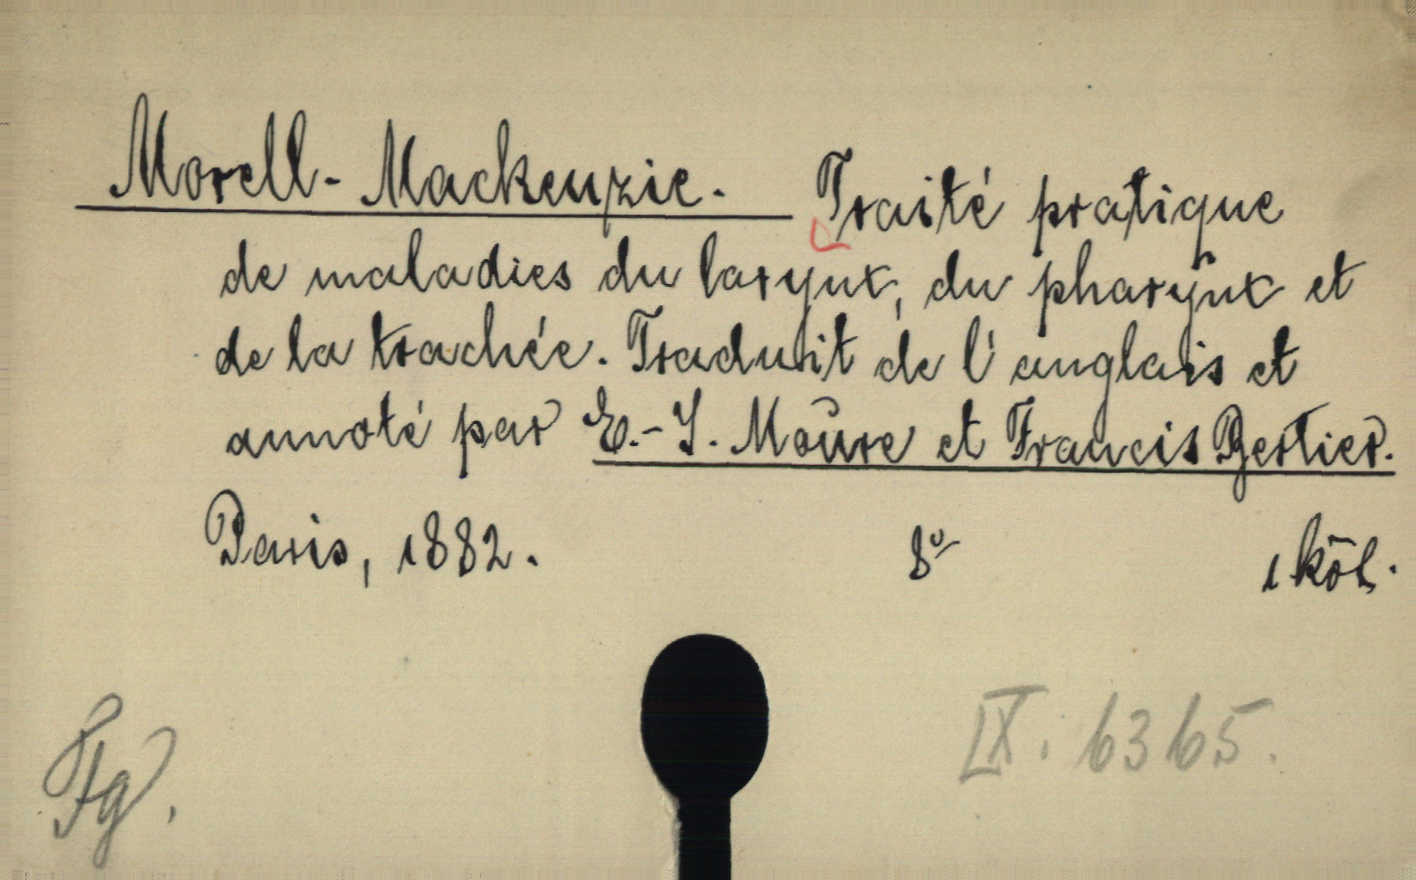 Morell-Mackenzie. Traité pratique
de maladies du larynx, du pharynx et
de la trachée. Traduit de l'anglais et
annoté par E.-J. Moure et Francis Bertier.
Paris, 1882. 8° 1 köt.
IX. 6365.
Fg.